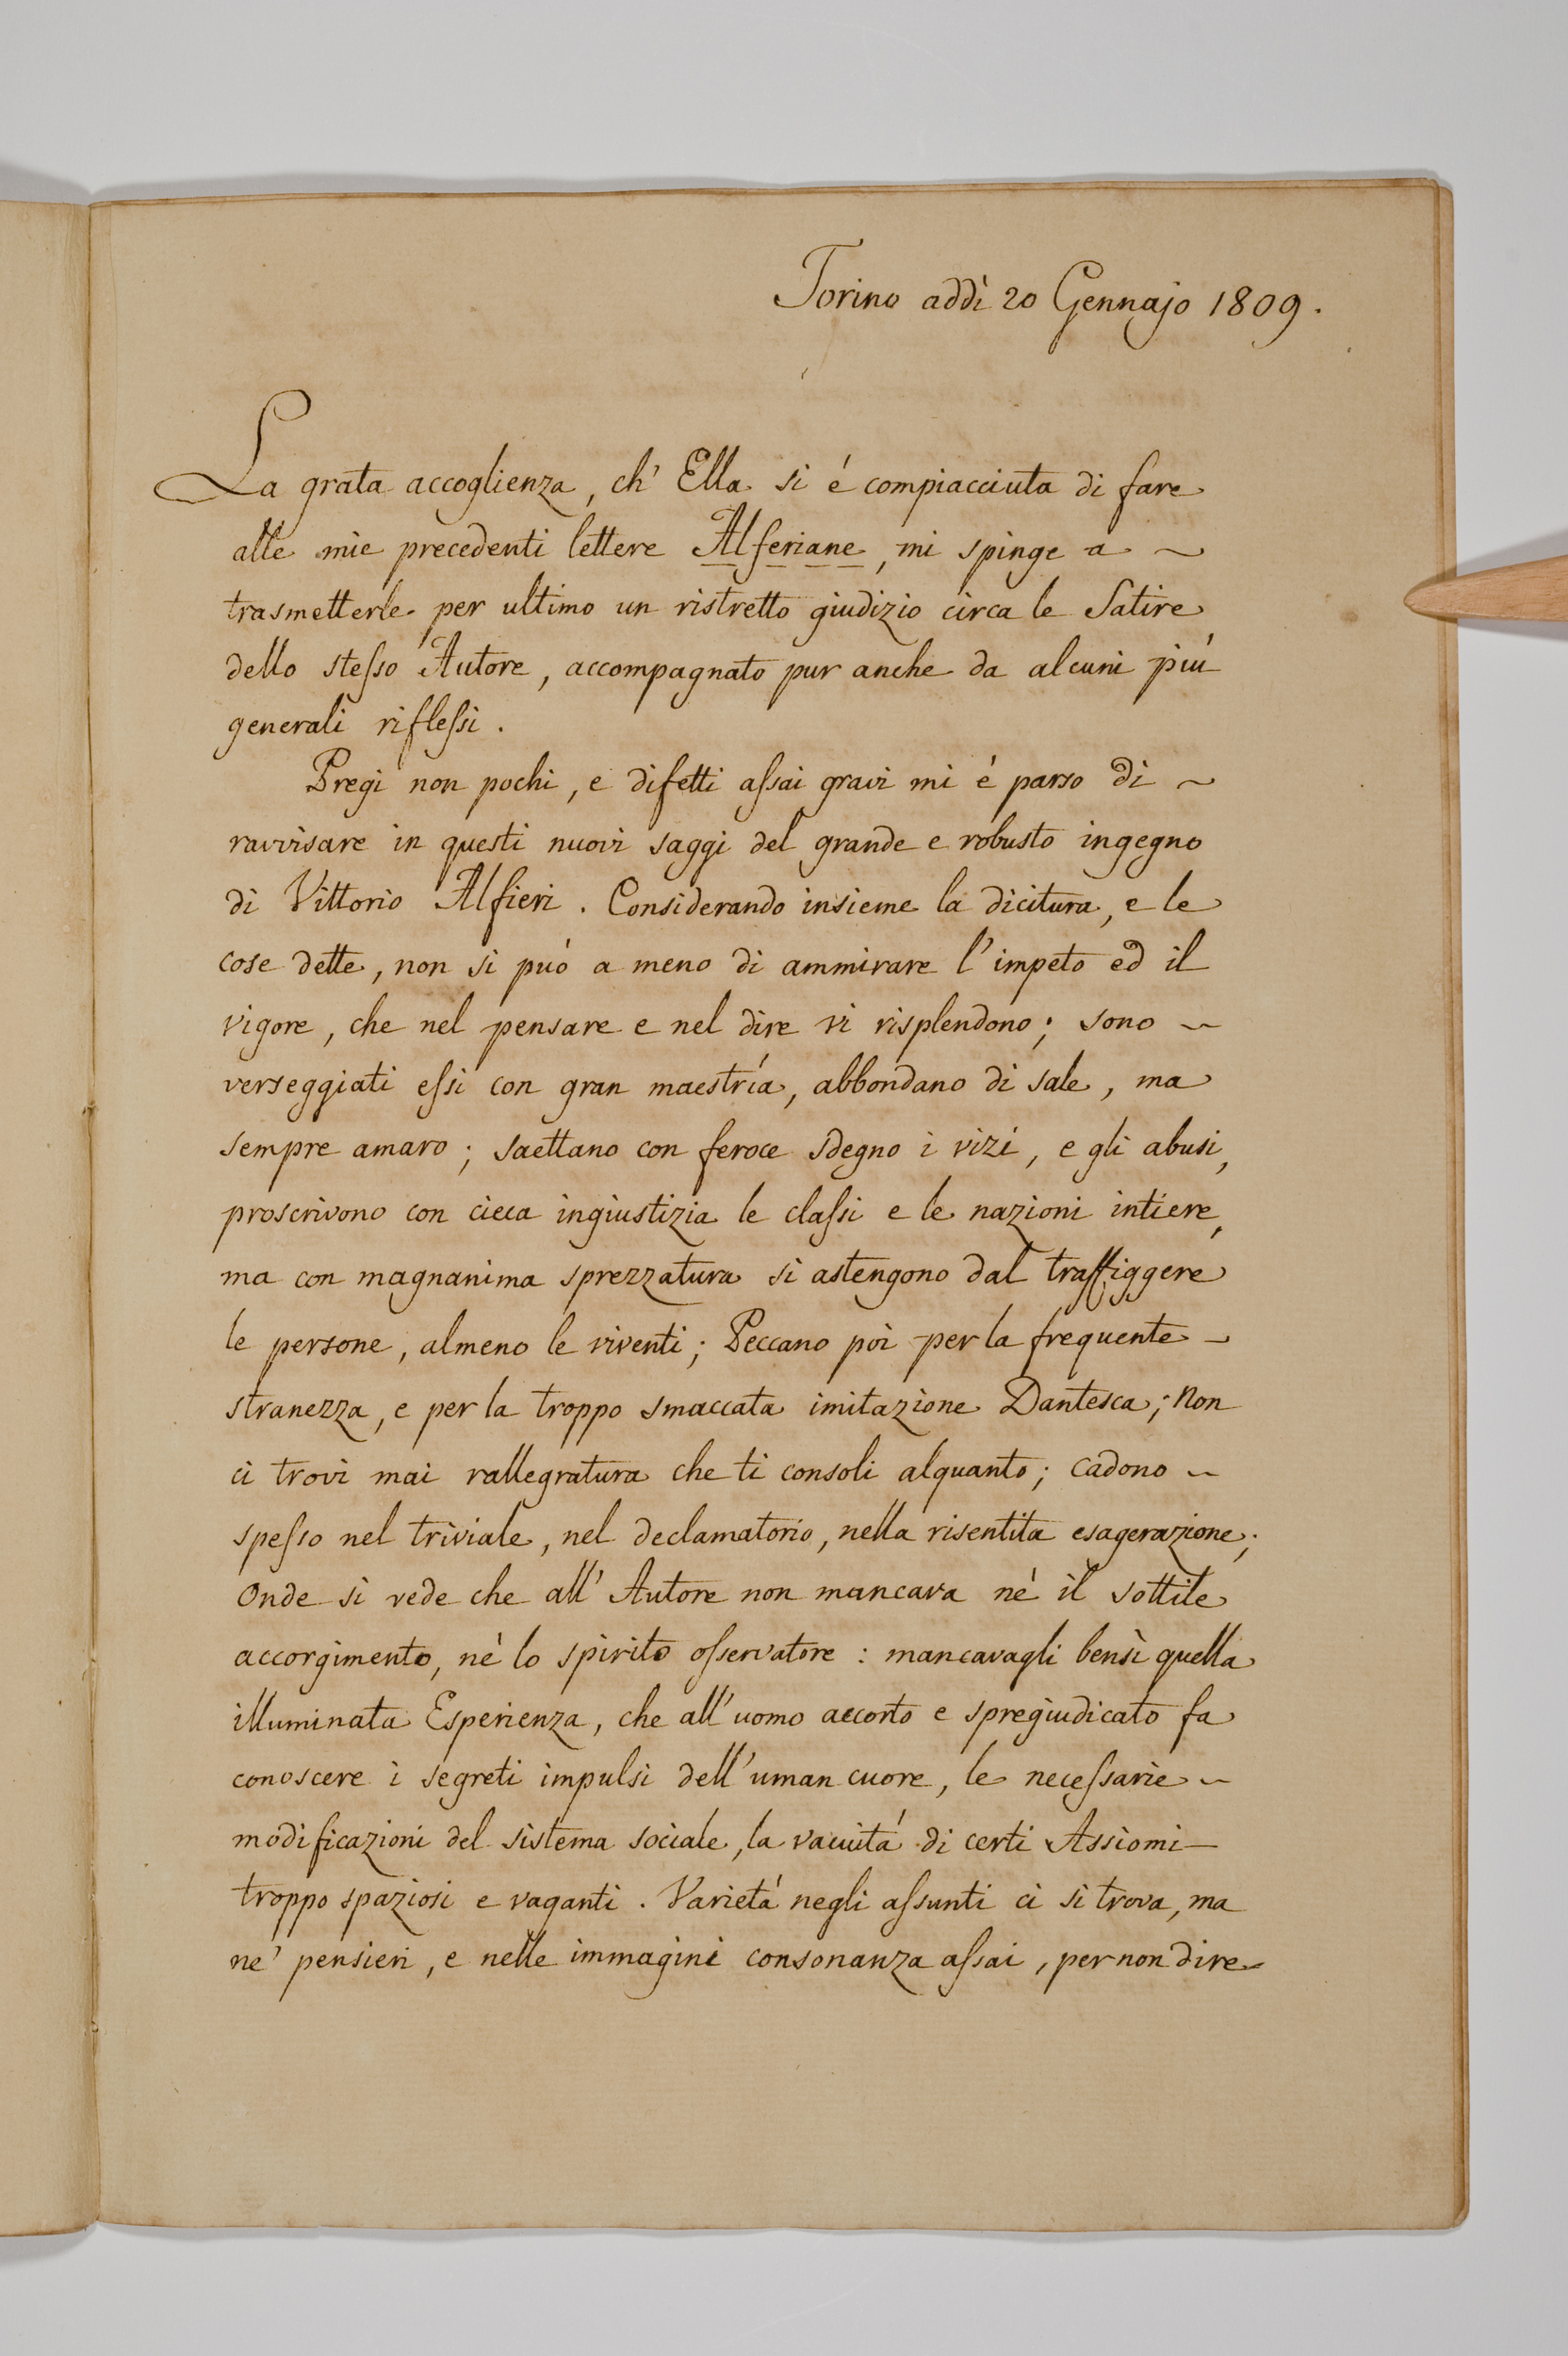 Torino addì 20 Gennajo 1809.
La grata accoglienza, ch' Ella si é compiacciuta di fare
alle mie precedenti lettere Alferiane, mi spinge a ~
trasmetterle per ultimo un ristretto giudizio circa le Satire
dello steſso Autore, accompagnato pur anche da alcuni piú
generali rifleſsi.
Pregi non pochi, e difetti aſsai gravi mi é parso di ~
ravvisare in questi nuovi saggi del grande e robusto ingegno
di Vittorio Alfieri. Considerando insieme la dicitura, e le
cose dette, non si puó a meno di ammirare l'impeto ed il
vigore, che nel pensare e nel dire vi risplendono; sono ~
verseggiati eſsi con gran maestría, abbondano di sale, ma
sempre amaro; saettano con feroce sdegno i vizi, e gli abusi,
proscrivono con cieca ingiustizia le claſsi e le nazioni intiere,
ma con magnanima sprezzatura si astengono dal traffiggere
le persone, almeno le viventi; Peccano poi per la frequente –
stranezza, e per la troppo smaccata imitazione Dantesca; Non
ci trovi mai rallegratura che ti consoli alquanto; cadono ~
speſso nel triviale, nel declamatorio, nella risentita esagerazione;
Onde si vede che all' Autore non mancava né il sottile
accorgimento, nè lo spirito oſservatore: mancavagli bensì quella
illuminata Esperienza, che all'uomo accorto e spregiudicato fa
conoscere i segreti impulsi dell'uman cuore, le neceſsarie ~
modificazioni del sistema sociale, la vacuitá di certi Assiomi –
troppo spaziosi e vaganti. Varietá negli aſsunti ci si trova, ma
ne' pensieri, e nelle immagini consonanza aſsai, per non dire